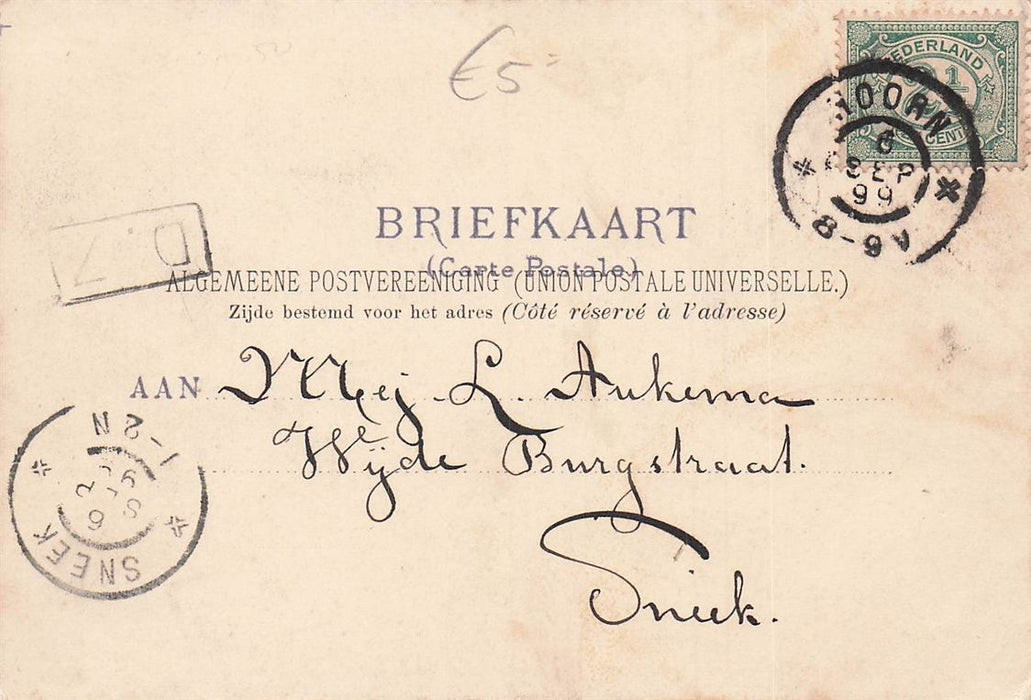 € 5 =
NEDERLAND
2½
CENT
HOORN
6
SEP
99
8-9 V
D. Z
BRIEFKAART
(Carte Postale)
ALGEMEENE POSTVEREENIGING (UNION POSTALE UNIVERSELLE.)
Zijde bestemd voor het adres (Côté réservé à l'adresse)
AAN Mej. L. Aukema
Wijde Burgstraat.
Sneek.
1-2 N
6 SEP 99
SNEEK